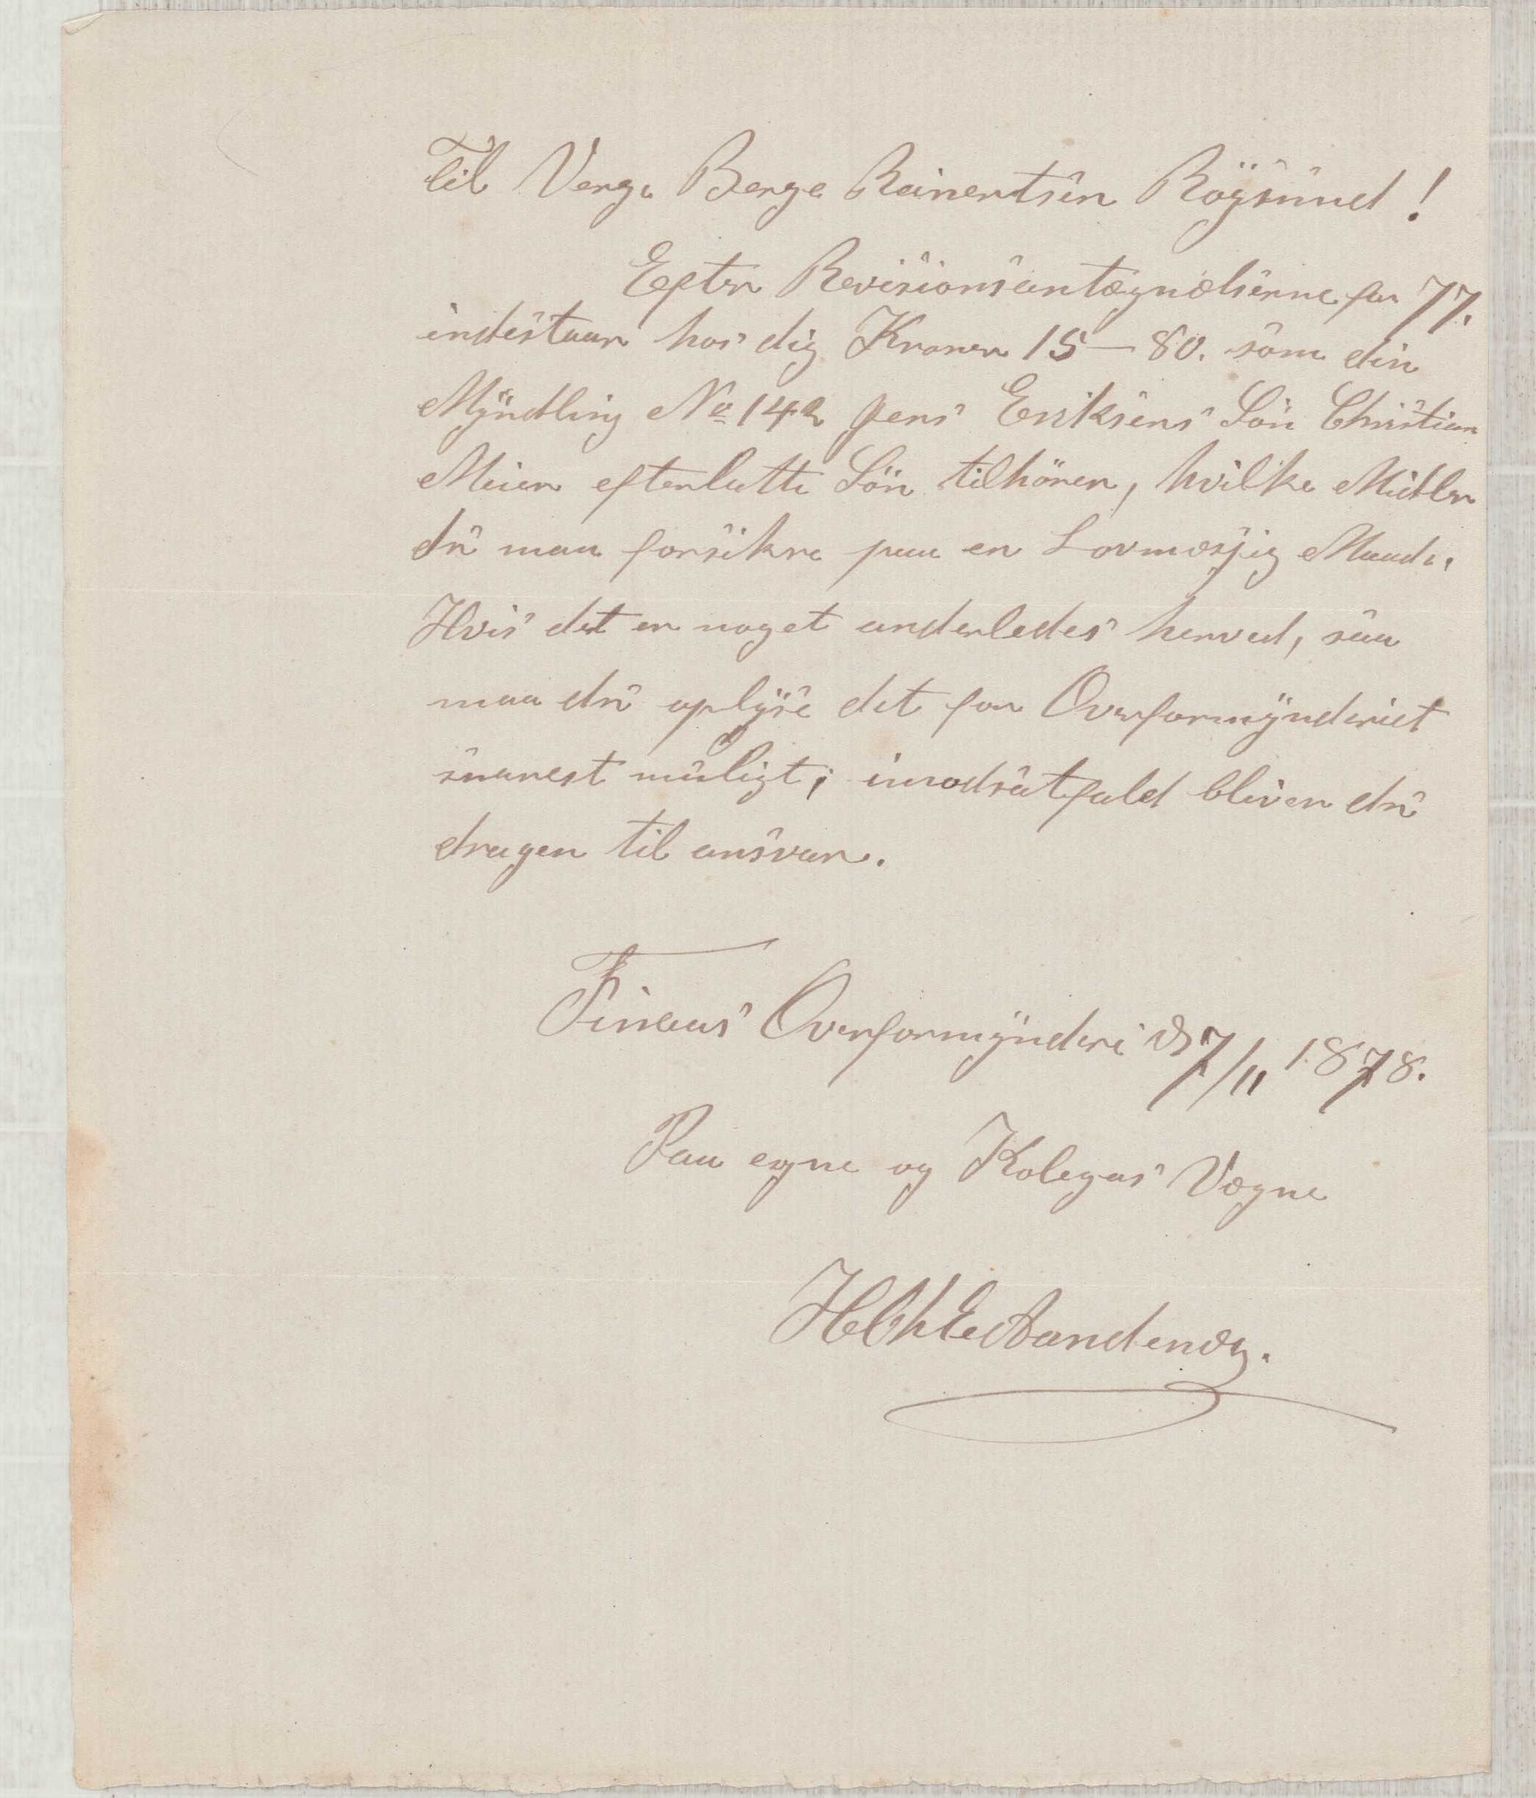 Til Verge Berge Reinertsen Röÿsund!
Efter Revisionsantægnelserne for 77.
indestaar hos dig Kroner 15—80. som din
Mÿndling No 142 Jens Eriksens Sön Christian
Meier efterlatte Sön tilhörer, hvilke Midler
du maa forsikre paa en Lovmæsjig Maade.
Hvis det er noget anderledes herved, saa
maa du oplÿse det for Overformÿnderiet
snarest muligt; imodsatfald bliver du
dragen til ansvar.
Finaas Overformÿnderi d 7/11 1878.
Paa egne og Kolegas Vægne
HChE Aandenæs.